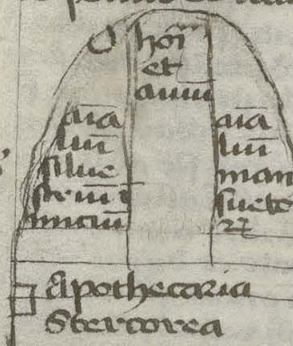 hoī
et
auiū
aīa
liū
silue
striū ī
mitiū
aīa
liū
man
sueto
ꝝ
Apothecaria
Stercorea